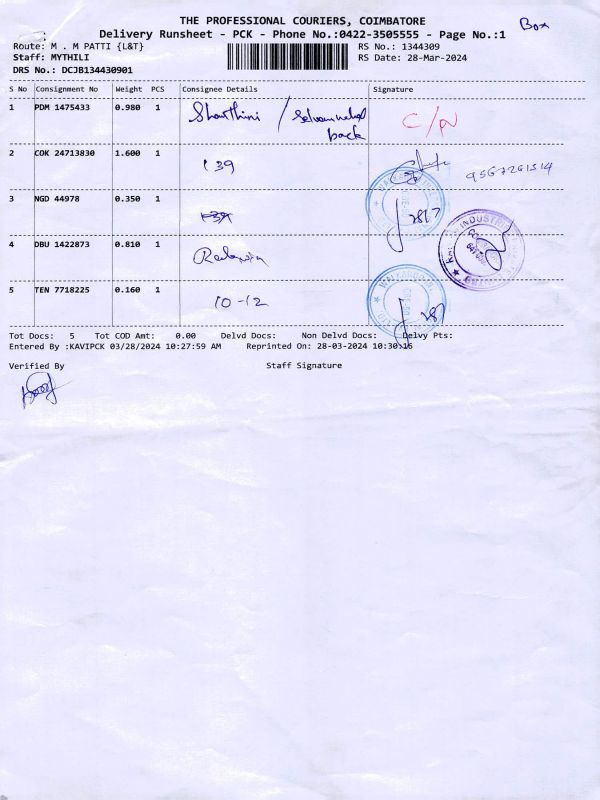 THE PROFESSIONAL COURIERS, COIMBATORE
Box
Delivery Runsheet - PCK - Phone No.:0422-3505555 - Page No.:1
Route: M . M PATTI {L&T}
RS No.: 1344309
Staff: MYTHILI
RS Date: 28-Mar-2024
DRS No.: DCJB134430901
S No Consignment No Weight PCS Consignee Details Signature
1 PDM 1475433 0.980 1 Shanthini / C/N
back
2 COK 24713830 1.600 1 139
3 NGD 44978 0.350 1
4 DBU 1422873 0.810 1
5 TEN 7718225 0.160 1 10-12
Tot Docs: 5 Tot COD Amt: 0.00 Delvd Docs: Non Delvd Docs: Delvy Pts:
Entered By :KAVIPCK 03/28/2024 10:27:59 AM Reprinted On: 28-03-2024 10:30:16
Verified By Staff Signature